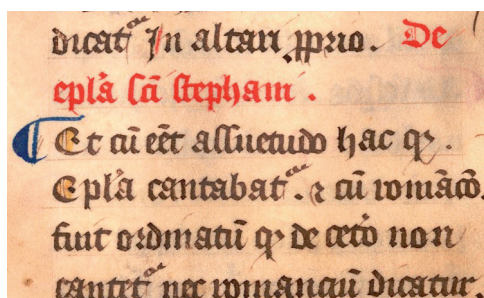 dicat᷑ʳ Jn altari ꝓprio. De
epl̄a sc̄i stephani .
¶ Et cū eēt assuetudo hac qꝫ .
Epl̄a cantabatʳ . ⁊ cū romācō.
fuit ordinatū qꝫ de cet̄o non
cantet᷑ʳ nec romanciū dicatur.